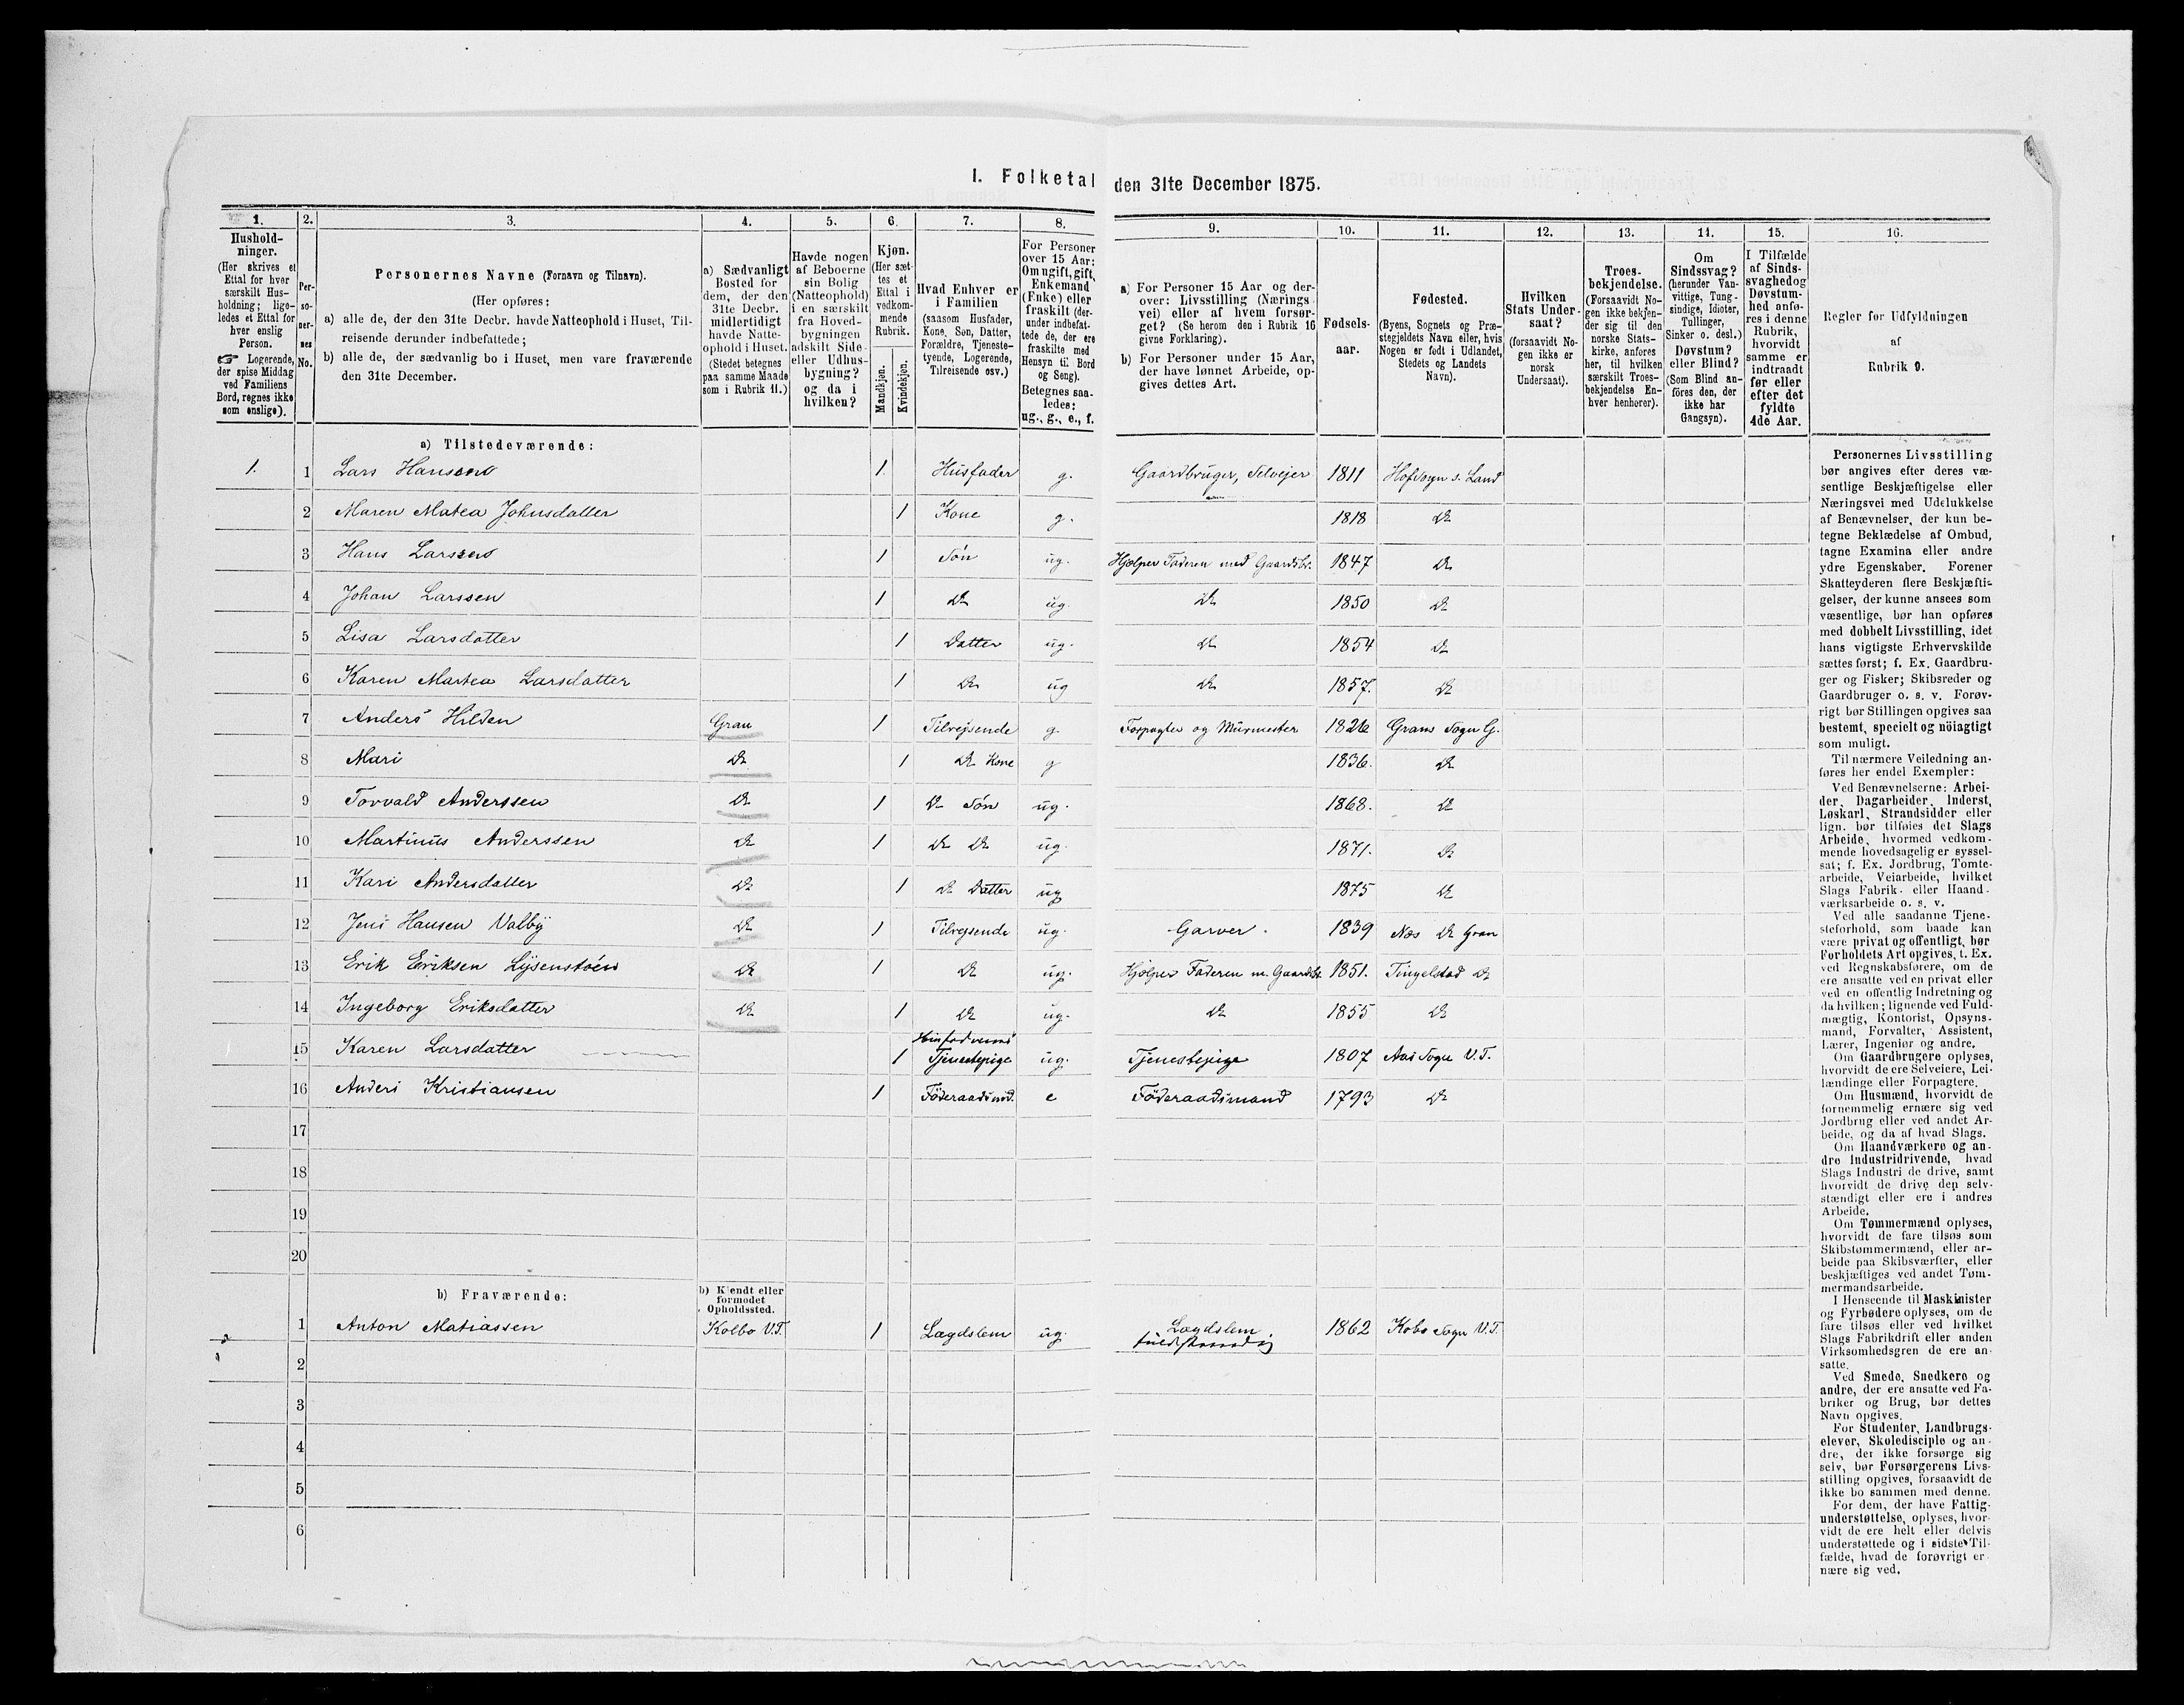 I. Folketal den 31te December 1875.
1. 2. 3. 4. 5. 6. 7. 8. 9. 10. 11. 12. 13. 14. 15. 16.
Hushold-
ninger.
(Her skrives et
Ettal for hver
særskilt Hus-
holdning; lige-
ledes et Ettal for
hver enslig
Person.
☞ Logerende,
der spise Middag
ved Familiens
Bord, regnes ikke
som enslige).
Per-
so-
ner-
nes
No.
Personernes Navne (Fornavn og Tilnavn).
(Her opføres:
a) alle de, der den 31te Decbr. havde Natteophold i Huset, Til-
reisende derunder indbefattede;
b) alle de, der sædvanlig bo i Huset, men vare fraværende
den 31te December.
a) Sædvanligt
Bosted for
dem, der den
31te Decbr.
midlertidigt
havde Natte-
ophold i Huset.
(Stedet betegnes
paa samme Maade
som i Rubrik 11.)
Havde nogen
af Beboerne
sin Bolig
(Natteophold)
i en særskilt
fra Hoved-
bygningen
adskilt Side-
eller Udhus-
bygning?
og da i
hvilken?
Kjøn.
(Her sæt-
tes et
Ettal i
vedkom-
mende
Rubrik.
Mandkjøn.
Kvindekjøn.
Hvad Enhver er
i Familien
(saasom Husfader,
Kone, Søn, Datter,
Forældre, Tjeneste-
tyende, Logerende,
Tilreisende osv.)
For Personer
over 15 Aar:
Om ugift, gift,
Enkemand
(Enke) eller
fraskilt (der-
under indbefat-
tede de, der ere
fraskilte med
Hensyn til Bord
og Seng).
Betegnes saa-
ledes:
ug., g., e., f.
a) For Personer 15 Aar og der-
over: Livsstilling (Nærings-
vei) eller af hvem forsør-
get? (Se herom den i Rubrik 16
givne Forklaring).
b) For Personer under 15 Aar,
der have lønnet Arbeide, op-
gives dettes Art.
Fødsels-
aar.
Fødested.
(Byens, Sognets og Præ-
stegjeldets Navn eller, hvis
Nogen er født i Udlandet,
Stedets og Landets
Navn).
Hvilken
Stats Under-
saat?
(forsaavidt No-
gen ikke er
norsk
Undersaat).
Troes-
bekjendelse.
(Forsaavidt No-
gen ikke bekjen-
der sig til den
norske Stats-
kirke, anføres
her, til hvilken
særskilt Troes-
bekjendelse En-
hver henhører).
Om
Sindssvag?
(herunder Van-
vittige, Tung-
sindige, Idioter,
Tullinger,
Sinker o. desl.)
Døvstum?
eller Blind?
(Som Blind an-
føres den, der
ikke har
Gangsyn).
I Tilfælde
af Sinds-
svaghed og
Døvstum-
hed anfø-
res i denne
Rubrik,
hvorvidt
samme er
indtraadt
før eller
efter det
fyldte
4de Aar.
Regler før Udfyldningen
af
Rubrik 9.
a) Tilstedeværende:
1. 1 Lars Hanseno 1 Husfader g. Gaardbruger, Selvejer 1811 Hofsogn s. Land
2 Maren Matea Johnsdatter 1 Kone g. 1818 Do
3 Hans Larsseno 1 Søn ug. Hjælper Faderen med Gaardsbr. 1847 Do
4 Johan Larssen 1 Do ug. Do 1850 Do
5 Lisa Larsdatter 1 Datter ug. Do 1854 Do
6 Karen Martea Larsdatter 1 Do ug Do 1857. Do
7 Anders Hilden Gran 1 Tilrejsende g. Forpagter og Murmester 1826 Grans Sogn G.
8 Mari Do 1 Do Kone g 1836. Do
9 Torvald Anderssen Do 1 Do Søn ug. 1868. Do
10 Martinus Anderssen Do 1 Do Do ug. 1871. Do
11 Kari Andersdatter Do 1 Do Datter ug 1875 Do
12 Jens Hansen Valby Do 1 Tilrejsende ug. Garver. 1839 Næs Do Gran
13 Erik Eriksen Lysenstøen Do 1 Do ug. Hjælper Faderen m. Gaardsbr. 1851. Tingelstad Do
14 Ingeborg Eriksdatter Do 1 Do ug. Do 1855 Do
15 Karen Larsdatter 1 Husfaderens Tjenestepige ug. Tjenestepige 1807 Aas Sogn V.T.
16 Anders Kristiansen 1 Føderaadsmd. e Føderaadsmand 1793 Do
17
18
19
20
b) Fraværende:
b) Kjendt eller
formodet
Opholdssted.
1 Anton Matiassen Kolbo V.T. 1 Lægdslem ug. Lægdslem 1862 Kobo Sogn V.T.
2
3
4
5
6
Personernes Livsstilling
bør angives efter deres væ-
sentlige Beskjæftigelse eller
Næringsvei med Udelukkelse
af Benævnelser, der kun be-
tegne Beklædelse af Ombud,
tagne Examina eller andre
ydre Egenskaber. Forener
Skatteyderen flere Beskjæfti-
gelser, der kunne ansees som
væsentlige, bør han opføres
med dobbelt Livsstilling, idet
hans vigtigste Erhvervskilde
sættes først; f. Ex. Gaardbru-
ger og Fisker; Skibsreder og
Gaardbruger o. s. v. Forøv-
rigt bør Stillingen opgives saa
bestemt, specielt og nöiagtigt
som muligt.
Til nærmere Veiledning an-
føres her endel Exempler:
Ved Benævnelserne: Arbei-
der, Dagarbeider, Inderst,
Løskarl, Strandsidder eller
lign. bør tilføies det Slags
Arbeide, hvormed vedkom-
mende hovedsagelig er syssel-
sat; f. Ex. Jordbrug, Tomte-
arbeide, Veiarbeide, hvilket
Slags Fabrik- eller Haand-
værksarbeide o. s. v.
Ved alle saadanne Tjene-
steforhold, som baade kan
være privat og offentligt, bør
Forholdets Art opgives, t. Ex.
ved Regnskabsførere, om de
ere ansatte ved en privat eller
ved en offentlig Indretning og
da hvilken; lignende ved Fuld-
mægtig, Kontorist, Opsyns-
mand, Forvalter, Assistent,
Lærer, Ingeniør og andre.
Om Gaardbrugere oplyses,
hvorvidt de ere Selveiere, Lei-
lændinge eller Forpagtere.
Om Husmænd, hvorvidt de
fornemmelig ernære sig ved
Jordbrug eller ved andet Ar-
beide, og da af hvad Slags.
Om Haandværkere og an-
dre Industridrivende, hvad
Slags Industri de drive, samt
hvorvidt de drive den selv-
stændigt eller ere i andres
Arbeide.
Om Tømmermænd oplyses,
hvorvidt de fare tilsøs som
Skibstømmermænd, eller ar-
beide paa Skibsværfter, eller
beskjæftiges ved andet Tøm-
mermandsarbeide.
I Henseende til Maskinister
og Fyrbødere oplyses, om de
fare tilsøs eller ved hvilket
Slags Fabrikdrift eller anden
Virksomhedsgren de ere an-
satte.
Ved Smede, Snedkere og
andre, der ere ansatte ved Fa-
briker og Brug, bør dettes
Navn opgives.
For Studenter, Landbrugs-
elever, Skoledisciple og an-
dre, der ikke forsørge sig
selv, bør Forsørgerens Livs-
stilling opgives, forsaavidt de
ikke bo sammen med denne.
For dem, der have Fattig-
understøttelse, oplyses, hvor-
vidt de ere helt eller delvis
understøttede og i sidste Til-
fælde, hvad de forøvrigt er-
nære sig ved.